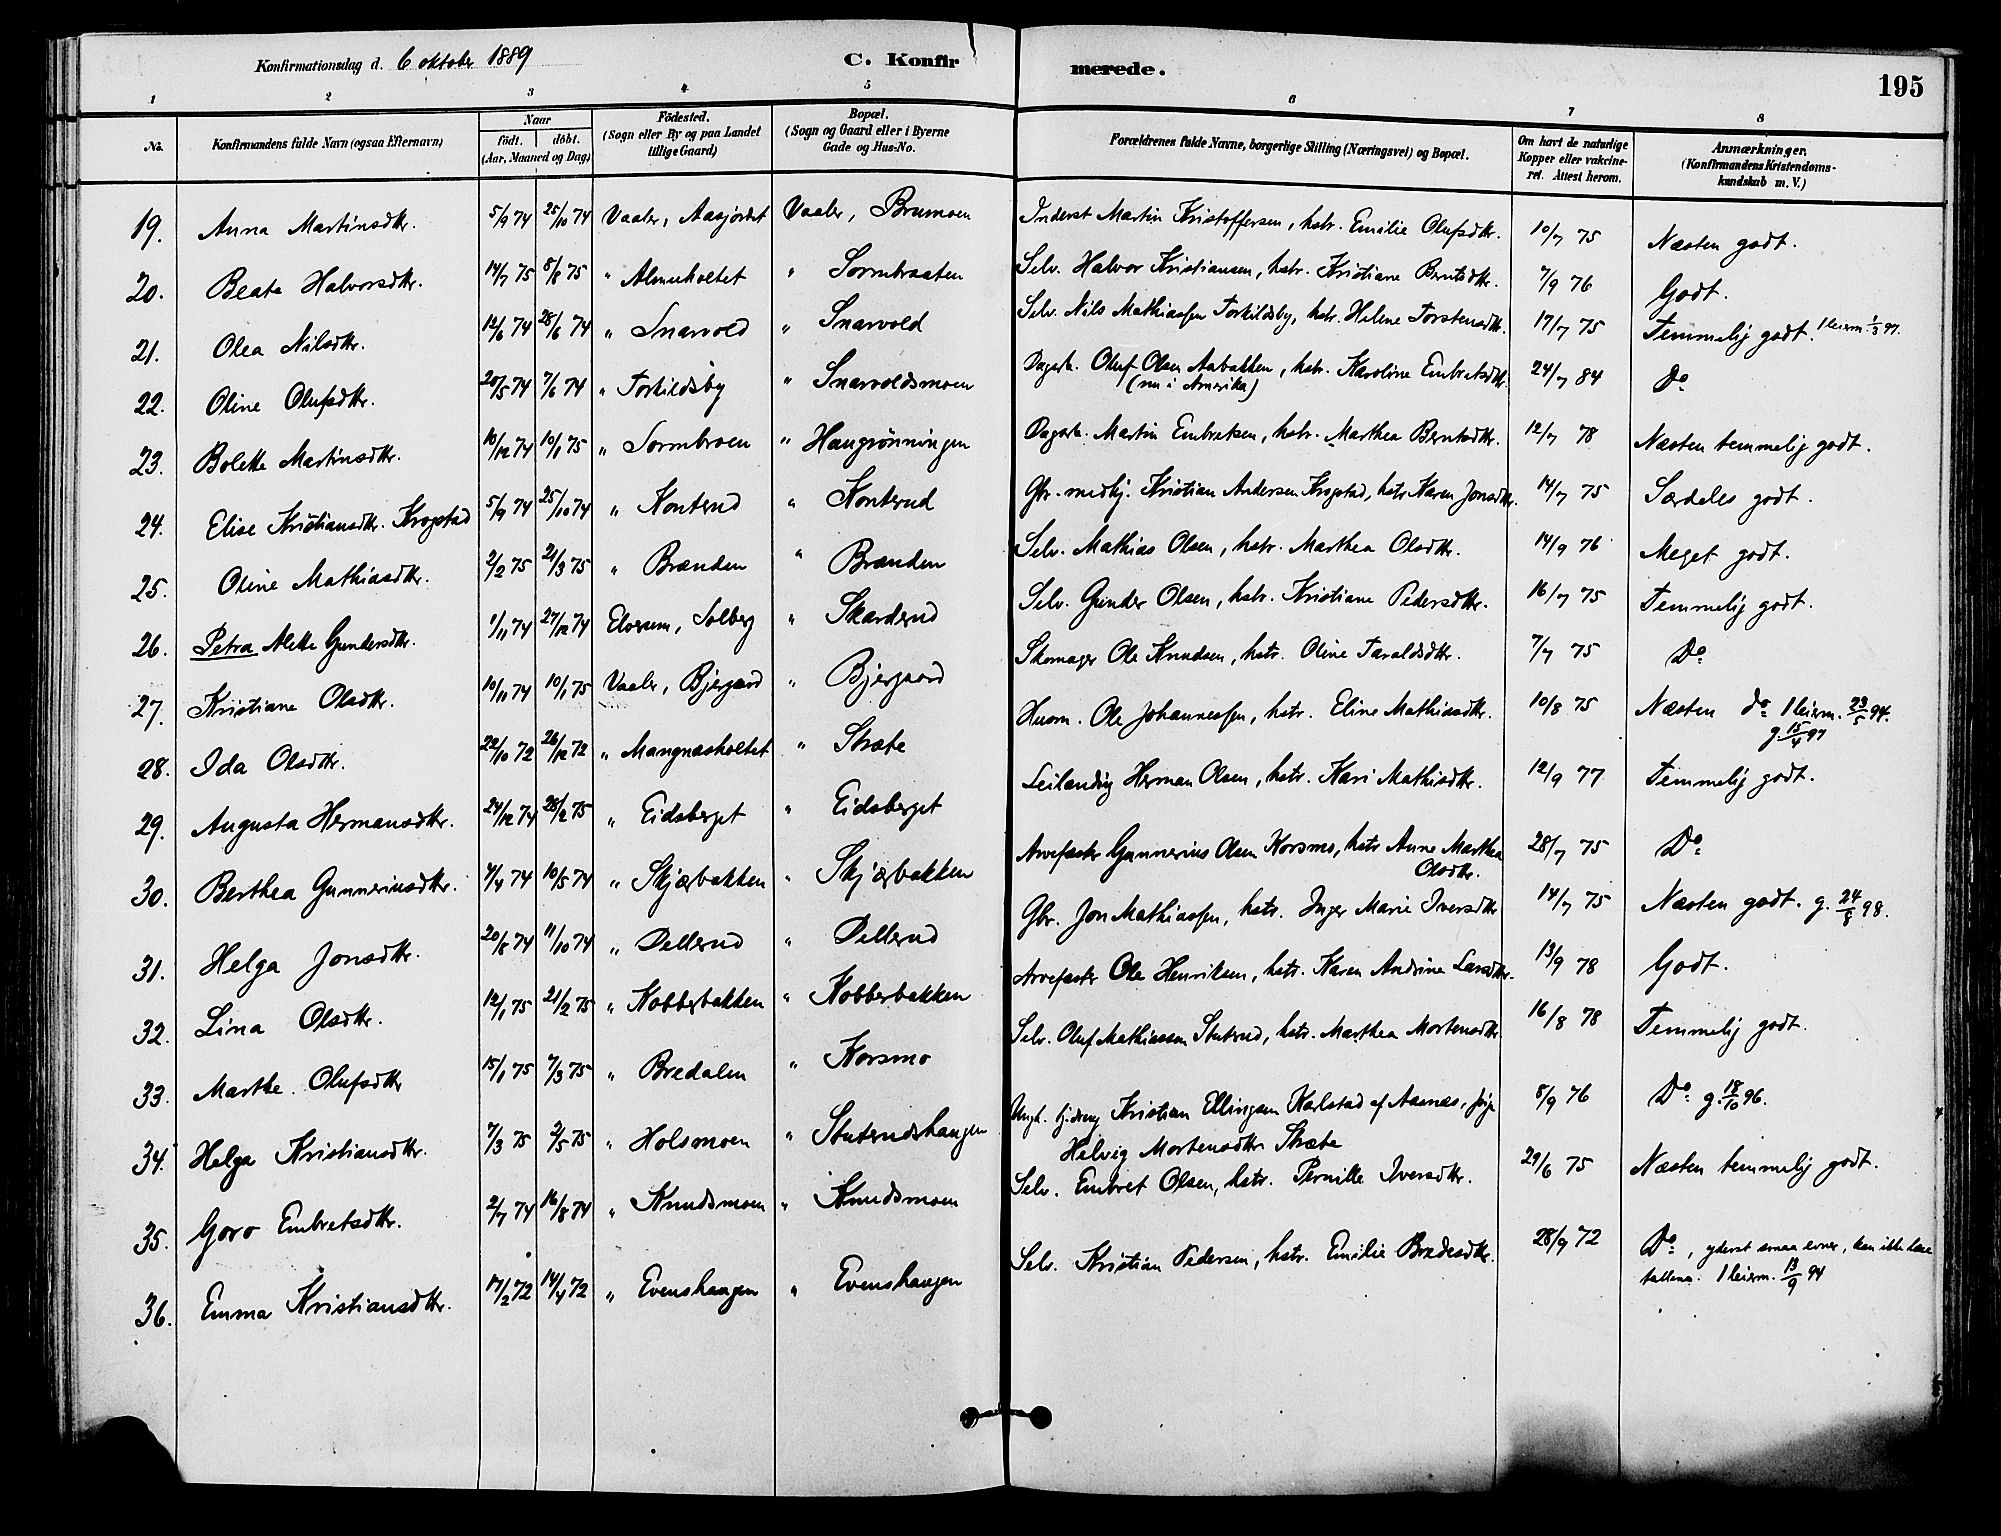 Konfirmationsdag d. 6 oktober 1889 C. Konfirmerede. 195
1 2 3 4 5 6 7 8
No. Konfirmandens fulde Navn (ogsaa Efternavn) Naar födt. döbt. (Aar, Maaned og Dag) Födested. (Sogn eller By og paa Landet tillige Gaard) Bopæl. (Sogn og Gaard eller i Byerne Gade og Hus-No. Forældrenes fulde Navne, borgerlige Stilling (Næringsvei) og Bopæl. Om havt de naturlige Kopper eller vakcineret. Attest herom. Anmærkninger. (Konfirmandens Kristendomskundskab m. V.)
19. Anna Martinsdtr. 5/9 74 25/10 74 Vaaler, Aasjordet Vaaler, Brumoen Inderst Martin Kristoffersen, hstr. Emilie Olufsdtr. 10/7 75 Næsten godt.
20. Beate Halvorsdtr. 14/7 75 8/8 75 " Almeholtet " Sormbraaten Selv. Halvor Kristiansen, hstr. Kristiane Berntsdtr. 7/9 76 Godt.
21. Olea Nilsdtr. 12/6 74 28/6 74 " Snarvold " Snarvold Selv. Nils Mathiassen Torkildsby, hstr. Helene Torstensdtr. 17/7 75 Temmelig godt. 1 leierm. 1/3 97.
22. Oline Olufsdtr. 20/5 74 7/6 74 " Torkildsby " Snarvoldsmoen Dagarb. Oluf Olsen Aabakken, hstr. Karoline Embretsdtr. 24/7 84 Do
(nu i Amerika)
23. Bolette Martinsdtr. 10/12 74 10/1 75 " Sormbroen " Haugrönningen Dagarb. Martin Embretsen, hstr. Marthea Berntsdtr. 12/7 78 Næsten temmelig godt.
24. Elise Kristiansdtr. Krogstad 5/9 74 25/10 74 " Konterud " Konterud Gbr. medhj. Kristian Andersen Krogstad, hstr Karen Jonsdtr. 14/7 75 Særdeles godt.
25. Oline Mathiasdtr. 2/2 75 21/3 75 " Brænden " Brænden Selv. Mathias Olsen, hstr. Marthea Olsdtr. 14/9 76 Meget godt.
26. Petra Alette Gundersdtr. 1/11 74 27/12 74 Elverum, Solberg " Skarderud Selv. Gunder Olsen, hstr. Kristiane Pedersdtr. 16/7 75 Temmelig godt.
27. Kristiane Olsdtr. 10/11 74 10/1 75 Vaaler, Bjergaard " Bjergaard Skomager Ole Knudsen, hstr. Oline Taraldsdtr. 7/7 75 Do
28. Ida Olsdtr. 22/10 72 26/12 72 " Mangnæsholtet " Stræte Husm. Ole Johannessen, hstr. Eline Mathiasdtr. 10/8 75 Næsten do 1 leierm. 23/5 94.
g. 15/4 97
29. Augusta Hermansdtr. 24/12 74 28/2 75 " Eidsberget " Eidsberget Leilænding Herman Olsen, hstr. Kari Mathisdtr. 12/9 77 Temmelig godt.
30. Berthea Gunneriusdtr. 7/4 74 10/5 74 " Skjærbakken " Skjærbakken Arvefæster Gunnerius Olsen Korsmo, hstr Anne Marthea Olsdtr. 28/7 75 Do
31. Helga Jonsdtr. 20/8 74 11/10 74 " Pellerud " Pellerud Gbr. Jon Mathiassen, hstr. Inger Marie Iversdtr 14/7 75 Næsten godt. g. 24/8 98.
32. Lina Olsdtr. 12/1 75 21/2 75 " Kobberbakken " Kobberbakken Arvefæster Ole Henriksen, hstr. Karen Andrine Larsdtr. 13/9 78 Godt.
33. Marthe Olufsdtr 15/1 75 7/3 75 " Bredalen " Korsmo Selv. Oluf Mathiassen Stuterud, hstr. Marthea Mortensdtr 16/8 78 Temmelig godt.
34. Helga Kristiansdtr. 7/3 75 2/5 75 " Holsmoen " Stuterudshaugen Ungk. Kristian Ellingsen Karlstad af Aasnæs, Helvig Mortensdtr Stræte 8/9 76 Do g. 18/10 96.
35. Goro Embretsdtr. 2/7 74 16/8 74 " Knudsmoen " Knudsmoen Selv. Embret Olsen, hstr. Pernille Iversdtr. 29/6 75 Næsten temmelig godt.
36. Emma Kristiansdtr. 17/2 72 14/4 72 " Evenshaugen " Evenshaugen Selv. Kristian Pedersen, hstr. Emilie Bredesdtr. 28/9 72 Do, yderst smaa evner, kan ikke læse
tallene. 1 leierm. 13/9 94